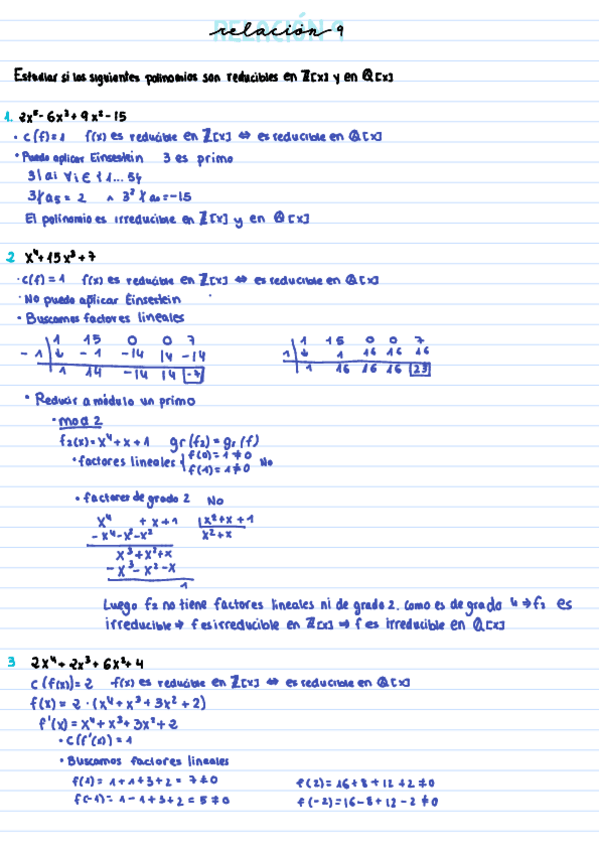 RELACIÓN 9
relación 9
Estudiar si los siguientes polinomios son reducibles en Z[x] y en Q[x]
1. 2x⁵-6x³+9x²-15
• C(f)=1 f(x) es reducible en Z[x] ⇔ es reducible en Q[x]
• Puedo aplicar Einsestein 3 es primo
3|ai ∀i∈{1...54
3∤a5=2 ∧ 3²∤a0=-15
El polinomio es irreducible en Z[x] y en Q[x]
2 x⁴+15x³+7
• C(f)=1 f(x) es reducible en Z[x] ⇔ es reducible en Q[x]
• No puedo aplicar Einsestein
• Buscamos factores lineales
1 15 0 0 7 1 15 0 0 7
-1 ↓ -1 -14 14 -14 1 ↓ 1 16 16 16
1 14 -14 14 -7 1 16 16 16 23
• Reducir a módulo un primo
• mod 2
f2(x)=x⁴+x+1 gr(f2)=gr(f)
• factores lineales { f(0)=1≠0 No
f(1)=1≠0
• factores de grado 2 No
x⁴ +x+1 |x²+x+1
-x⁴-x³-x² x²+x
x³+x²+x
-x³-x²-x
1
Luego f2 no tiene factores lineales ni de grado 2. Como es de grado 4 → f2 es
irreducible → f es irreducible en Z[x] → f es irreducible en Q[x]
3 2x⁴+2x³+6x²+4
C(f(x))=2 f(x) es reducible en Z[x] ⇔ es reducible en Q[x]
f(x)=2·(x⁴+x³+3x²+2)
f'(x)=x⁴+x³+3x²+2
• C(f'(x))=1
• Buscamos factores lineales
f(1)=1+1+3+2=7≠0 f(2)=16+8+12+2≠0
f(-1)=1-1+3+2=5≠0 f(-2)=16-8+12-2≠0